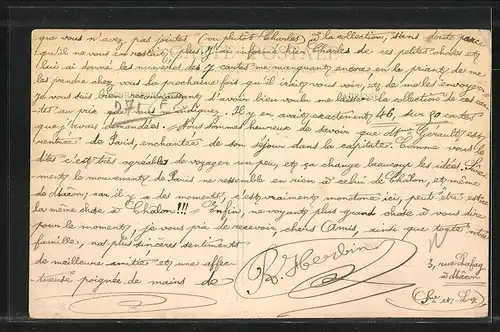 que vous n'avez pas jointes (ou plutôt Charles) à la collection, sans doute parce
qu'il ne vous en restait plus. J'ai informé hier Charles de ces petites choses et
lui ai donné les numéros des 7 cartes me manquant encore, en le priant de me
les prendre chez vous la prochaine fois qu'il irait vous voir, et de me les envoyer.
Je vous suis bien reconnaissant d'avoir bien voulu me laisser la collection de ces car-
tes au prix indiqué. Il y en avait exactement 46, sur 50 cartes
que j'avais demandées. Nous sommes heureux de savoir que Mme Girault est
rentrée de Paris, enchantée de son séjour dans la capitale. Comme vous le
dites c'est très agréable de voyager un peu, et ça change beaucoup les idées.
ment le mouvement de Paris ne ressemble en rien à celui de Châlon, et même
de Mâcon; car il y a des moments où c'est vraiment monotone ici, peut-être est-ce
la même chose à Châlon!!! Enfin, ne voyant plus grand chose à vous dire
pour le moment, je vous prie de recevoir, chers Amis, ainsi que toute votre
famille, nos plus sincères sentiments
de meilleure amitié et une affec-
tueuse poignée de mains de
R. Herbin
3, rue
à Mâcon
(S. et L.)